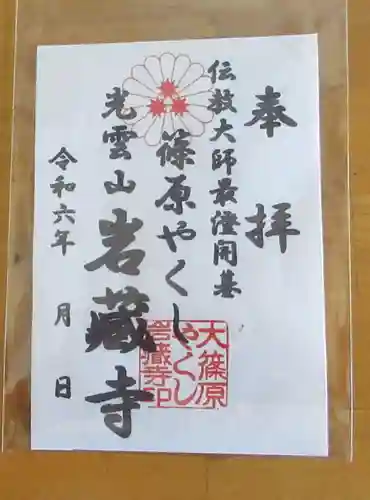 奉拝
伝教大師最澄開基
篠原やくし
光雲山
岩蔵寺
令和六年 月 日
大篠原
やくし
岩蔵寺印